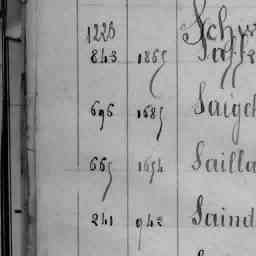 1226 Schw
843 1865 Saffe
696 1685 Saigch
665 1654 Sailla
241 942 Saind